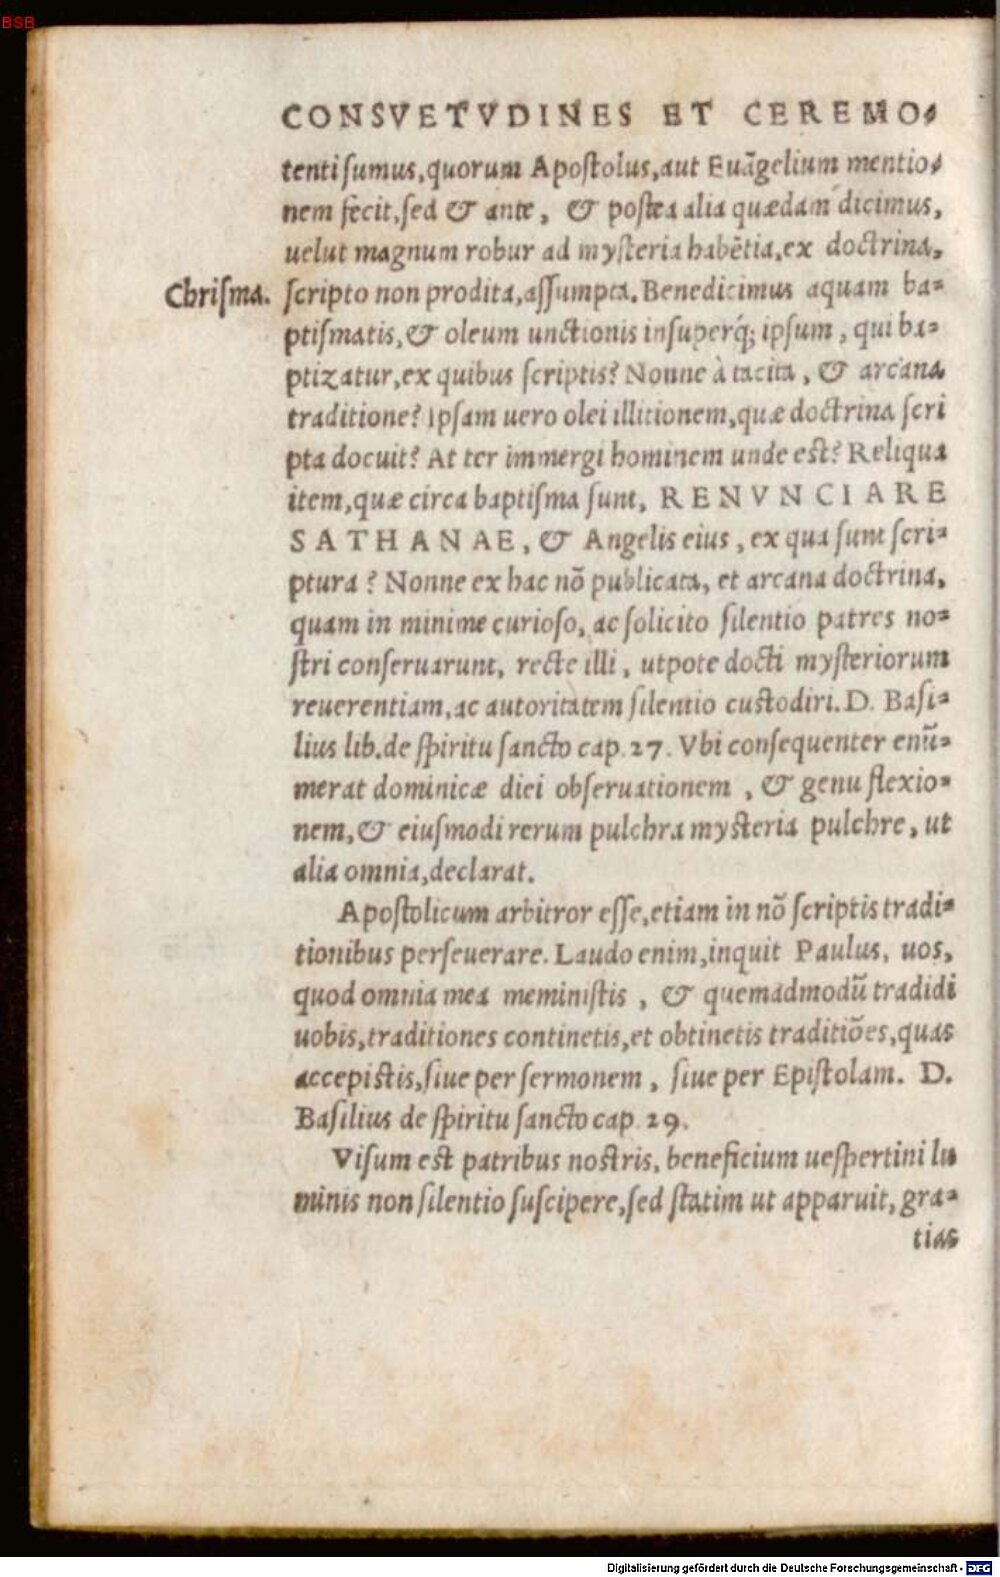 BSB
CONSVETVDINES ET CEREMO-
tenti sumus, quorum Apostolus, aut Euāgelium mentio-
nem fecit, sed & ante, & postea alia quædam dicimus,
uelut magnum robur ad mysteria habētia, ex doctrina,
Chrisma.
scripto non prodita, assumpta. Benedicimus aquam ba-
ptismatis, & oleum unctionis insuperq́; ipsum, qui ba-
ptizatur, ex quibus scriptis? Nonne à tacita, & arcana
traditione? Ipsam uero olei illitionem, quæ doctrina scri
pta docuit? At ter immergi hominem unde est? Reliqua
item, quæ circa baptisma sunt, RENVNCIARE
SATHANAE, & Angelis eius, ex qua sunt scri-
ptura? Nonne ex hac nō publicata, et arcana doctrina,
quam in minime curioso, ac solicito silentio patres no-
stri conseruarunt, recte illi, utpote docti mysteriorum
reuerentiam, ac autoritatem silentio custodiri. D. Basi-
lius lib. de spiritu sancto cap. 27. Vbi consequenter enū-
merat dominicæ diei obseruationem, & genu flexio-
nem, & eiusmodi rerum pulchra mysteria pulchre, ut
alia omnia, declarat.
Apostolicum arbitror esse, etiam in nō scriptis tradi-
tionibus perseuerare. Laudo enim, inquit Paulus, uos,
quod omnia mea meministis, & quemadmodū tradidi
uobis, traditiones continetis, et obtinetis traditiōes, quas
accepistis, siue per sermonem, siue per Epistolam. D.
Basilius de spiritu sancto cap. 29.
Visum est patribus nostris, beneficium uespertini lu
minis non silentio suscipere, sed statim ut apparuit, gra-
tias
Digitalisierung gefördert durch die Deutsche Forschungsgemeinschaft - DFG